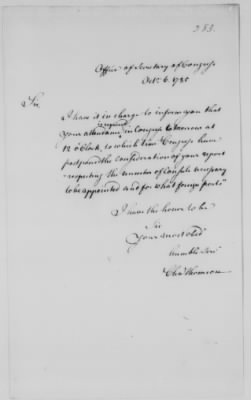 253.
Office of Secretary of Congress
Octr. 6. 1785
Sir,
I have it in charge to inform you that
required
your attendance in Congress to morrow at
12 oClock, to which time Congress have
postponed the consideration of your report
"respecting the number of Consuls necessary
to be appointed and for what foreign ports"
I have the honor to be
Sir
Your most obedt
humble Servt
Chas Thomson